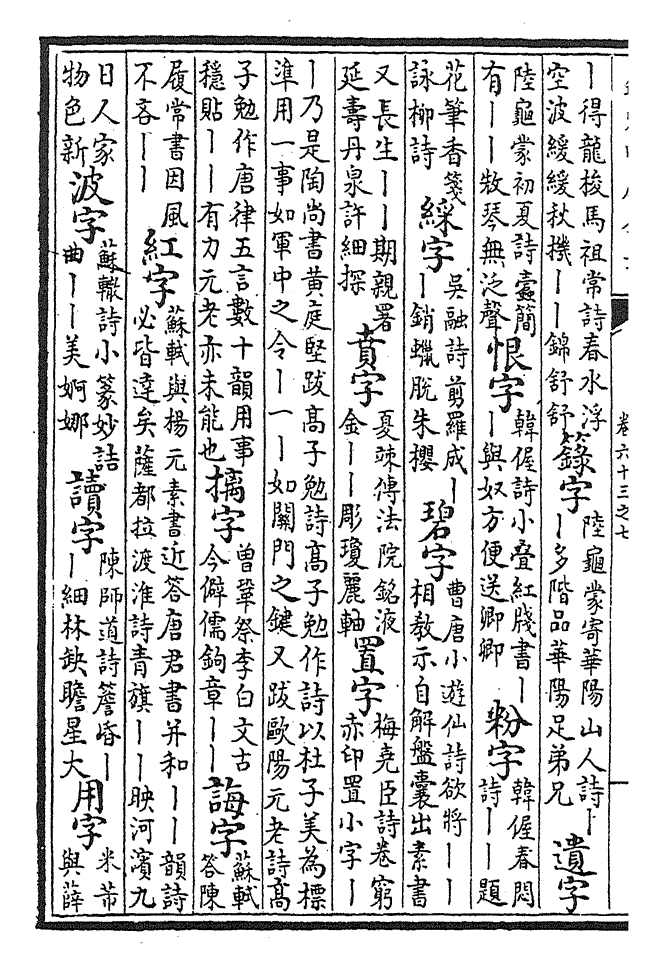 卷六十三之七
丨得龍梭馬祖常詩春水浮
空波緩緩秋機丨丨錦舒舒
籙字
陸龜蒙寄華陽山人詩丨
丨多階品華陽足弟兄
遺字
陸龜蒙初夏詩蠹簡
有丨丨㪚琴無泛聲
恨字
韓偓詩小疊紅牋書丨
丨與奴方便送卿卿
粉字
韓偓春悶
詩丨丨題
花筆香箋
詠柳詩
綵字
吳融詩剪羅成丨
丨銷蠟脫朱櫻
碧字
曹唐小遊仙詩欲將丨丨
相教示自解盤囊出素書
又長生丨丨期親署
延壽丹泉許細探
賁字
夏竦傳法院銘液
金丨丨彫瓊麗軸
置字
梅堯臣詩卷窮
赤印置小字丨
丨乃是陶尚書黄庭堅跋高子勉詩高子勉作詩以杜子美為標
準用一事如軍中之令丨一丨如關門之鍵又跋歐陽元老詩高
子勉作唐律五言數十韻用事
穩貼丨丨有力元老亦未能也
摛字
曾鞏祭李白文古
今僻儒鉤章丨丨
誨字
蘇軾
答陳
履常書因風
不吝丨丨
紅字
蘇軾與楊元素書近答唐君書并和丨丨韻詩
必皆達矣薩都拉渡淮詩青旗丨丨映河濱九
日人家
物色新
波字
蘇轍詩小篆妙詰
曲丨丨美婀娜
讀字
陳師道詩簷昏丨
丨細林缺瞻星大
用字
米芾
與薛